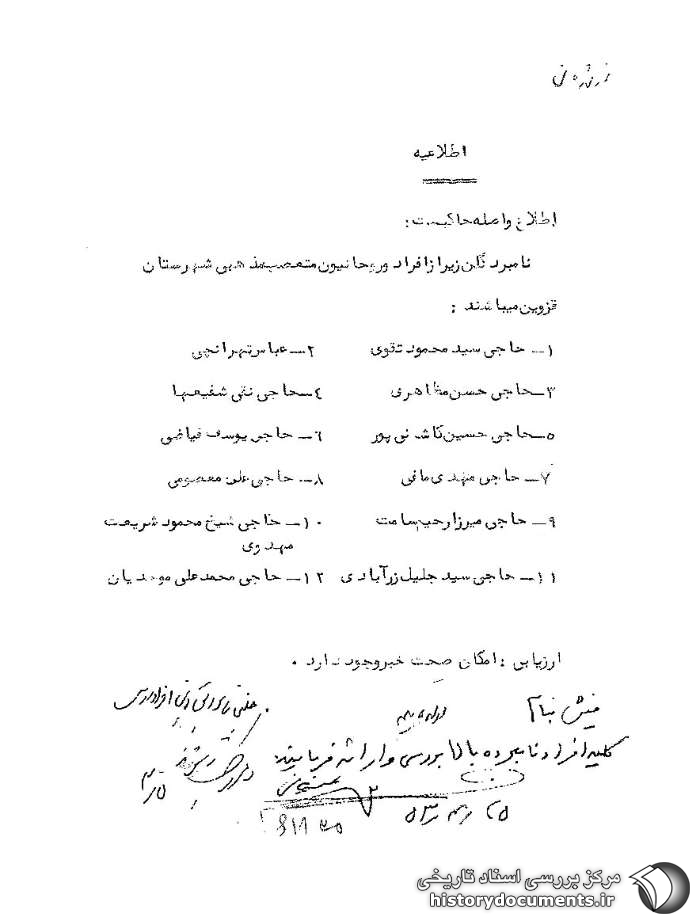 اطلاعیه
اطلاع واصله حاکیست :
نامبردگان زیر از افراد و روحانیون متعصب مذهبی شهرستان
قزوین میباشند :
۱ـ حاجی سید محمود تقوی ۲ـ عباس تهرانچی
۳ـ حاجی حسن مظاهری ۴ـ حاجی نقی شفیعیها
۵ـ حاجی حسین کاشانی پور ۶ـ حاجی یوسف فیاضی
۷ـ حاجی مهدی مافی ۸ـ حاجی علی معصومی
۹ـ حاجی میرزا رحیم سامت ۱۰ـ حاجی شیخ محمود شریعت
مهدوی
۱۱ـ حاجی سید جلیل زرآبادی ۱۲ـ حاجی محمد علی موحدیان
ارزیابی : امکان صحت خبر وجود دارد .
فیش بنام
کلیه افراد نامبرده بالا بررسی و ارائه فرمایید
مرکز بررسی اسناد تاریخی
historydocuments.ir